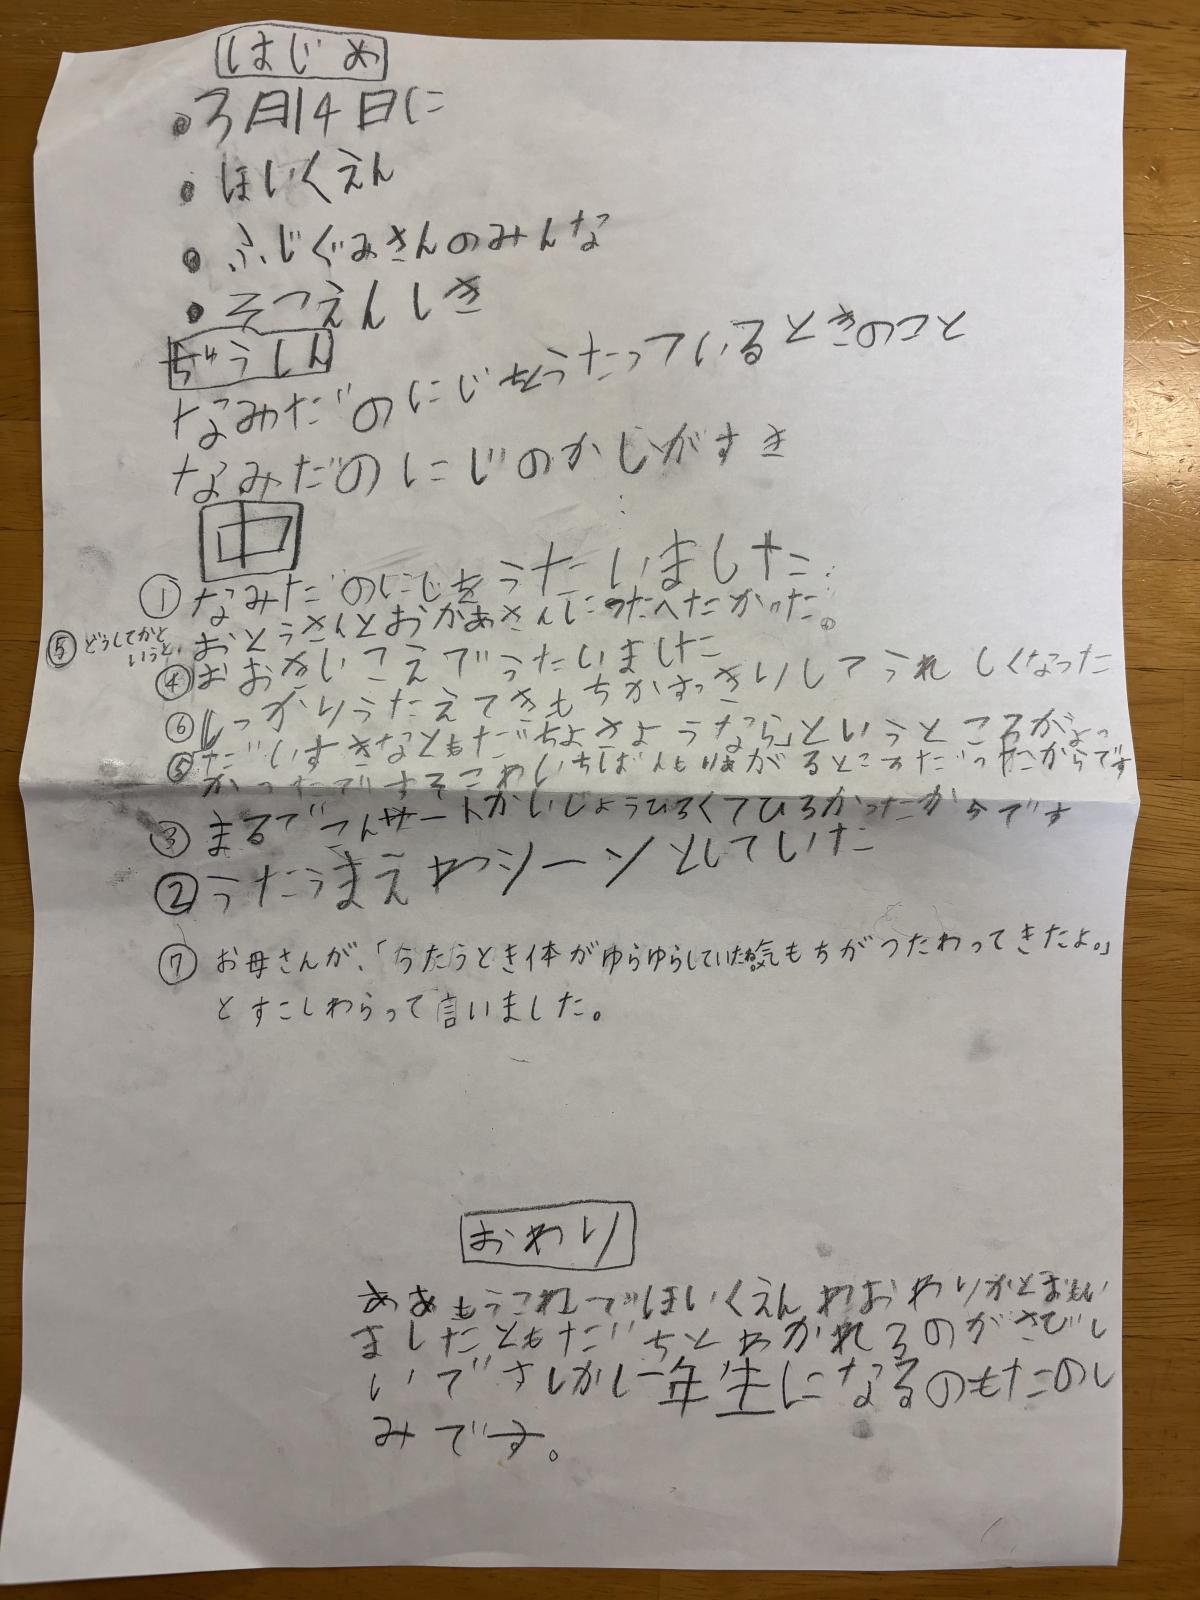 はじめ
・3月14日に
・ほいくえん
・ふじぐみさんのみんな
・そつえんしき
ぢゅうしん
なみだのにじをうたっているときのこと
なみだのにじのかしがすき
中
① なみだのにじをうたいました。
おとうさんとおかあさんにつたへたかった。
⑤ どうしてかというと、
④ おおきいこえでうたいました
⑥ しっかりうたえてきもちがすっきりしてうれしくなった
⑤ だいすきなともだちよさようなら」というところがよっ
かったですそこわいちばんもりあがるところだったからです
③ まるでこんサートかいじょうひろくてひろかったからです
② うたうまえわシーンとしていた
⑦ お母さんが、「うたうとき体がゆらゆらしていたね。気もちがつたわってきたよ。」
とすこしわらって言いました。
おわり
ああもうこれでほいくえんわおわりかとおもい
ましたともだちとわかれるのがさびし
いでさしかし一年生になるのもたのし
みです。